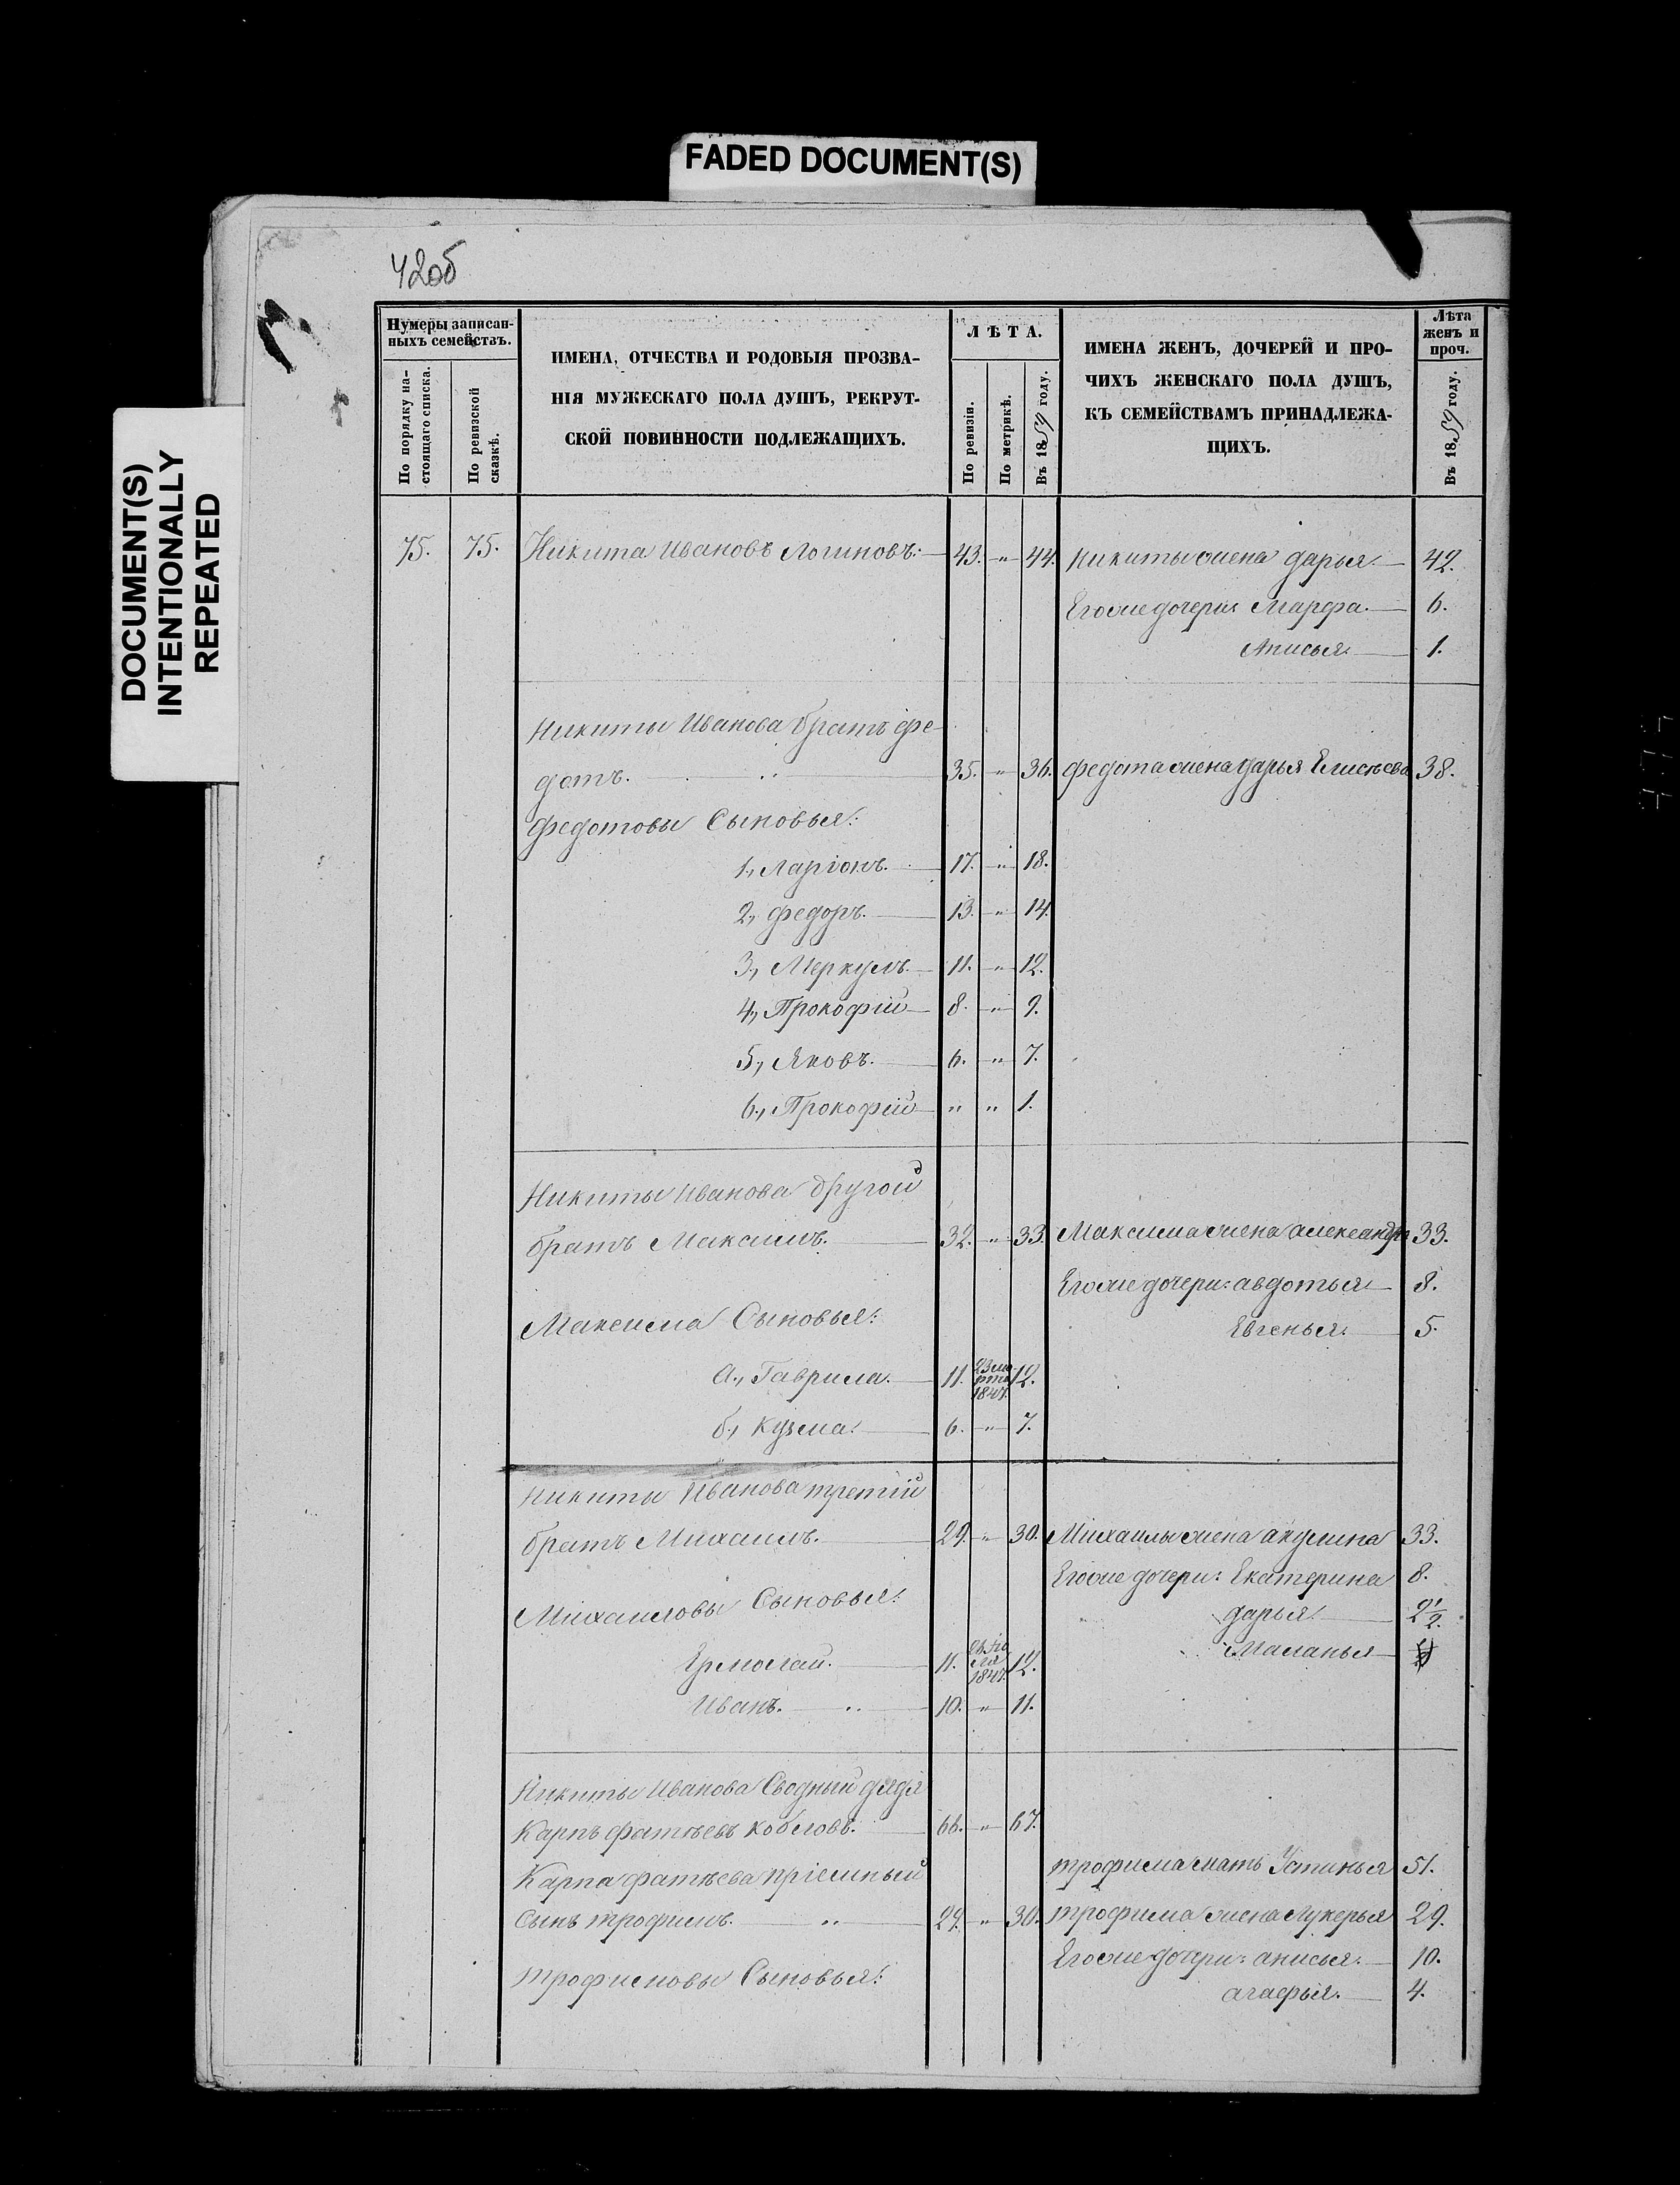 FADED DOCUMENT(S)
DOCUMENT(S)
INTENTIONALLY
REPEATED
42об
Нумеры записан-
ныхъ семействъ.
По порядку на-
стоящаго списка.
По ревизской
сказкѣ.
ИМЕНА, ОТЧЕСТВА И РОДОВЫЯ ПРОЗВА-
НІЯ МУЖЕСКАГО ПОЛА ДУШЪ, РЕКРУТ-
СКОЙ ПОВИННОСТИ ПОДЛЕЖАЩИХЪ.
ЛѢТА.
По ревизіи.
По метрикѣ.
Въ 1859 году.
ИМЕНА ЖЕНЪ, ДОЧЕРЕЙ И ПРО-
ЧИХЪ ЖЕНСКАГО ПОЛА ДУШЪ,
КЪ СЕМЕЙСТВАМЪ ПРИНАДЛЕЖА-
ЩИХЪ.
Лѣта
женъ и
проч.
Въ 1859 году.
75. 75. Никита Ивановъ Логиновъ. 43. " 44. Никиты жена Дарья. 42.
Егоже дочери: Марфа. 6.
Анисья. 1.
Никиты Иванова братъ Фе-
дотъ. 35. " 36. Федота жена Дарья Елисѣева 38.
Федотовы Сыновья:
1., Ларіонъ. 17. " 18.
2., Федоръ. 13. " 14.
3., Меркулъ. 11. " 12.
4., Прокофій 8. " 9.
5., Яковъ. 6. " 7.
6., Прокофій " " 1.
Никиты Иванова другой
братъ Максимъ. 32. " 33. Максима жена Александра 33.
Егоже дочери: Авдотья 8.
Максима Сыновья:
Евгенья. 5.
а., Гаврила. 11. 23 марта 1847. 12.
б., Кузма. 6. " 7.
Никиты Иванова третій
братъ Михаилъ. 29. " 30. Михаилы жена Акулина 33.
Егоже дочери: Екатерина 8.
Михаиловы Сыновья:
Дарья. 2 1/2.
Маланья
Ермолай. 11. 1847. 12.
Иванъ. 10. " 11.
Никиты Иванова Сводный дядя
Карпъ Фатѣевъ Кобловъ. 66. " 67.
Карпа Фатѣева пріемный
Трофима мать Устинья 51.
сынъ Трофимъ. 29. " 30. Трофима жена Лукерья 29.
Егоже дочери: Анисья. 10.
Трофимовы Сыновья:
Агафья. 4.